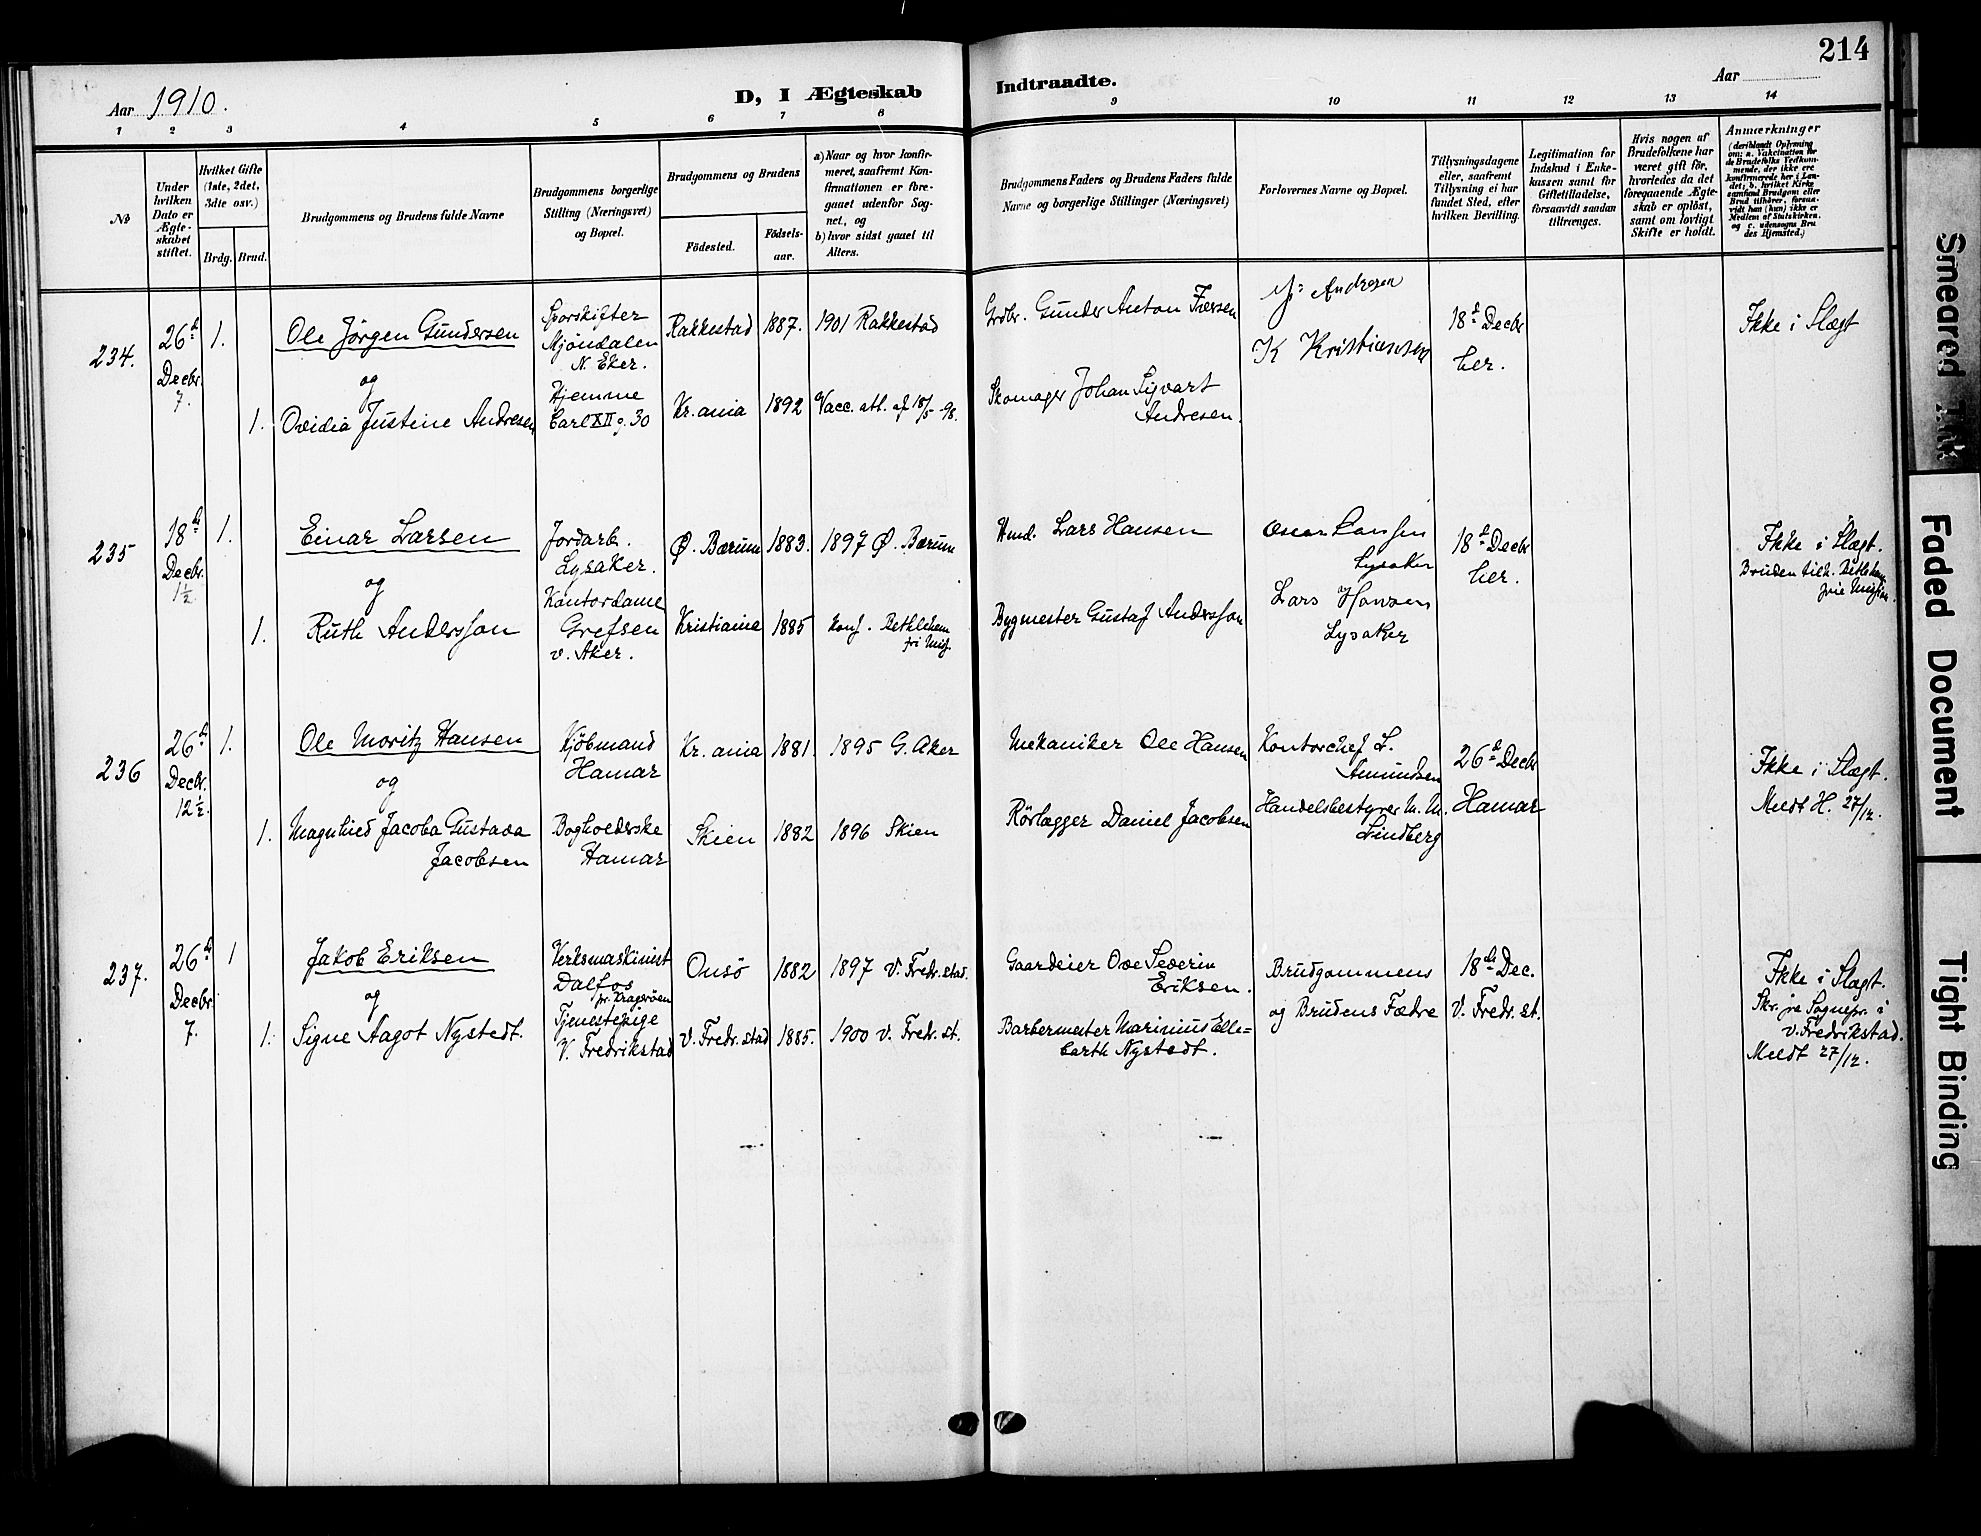 214
Aar 1910.
D, I Ægteskab Indtraadte.
Aar
1 2 3 4 5 6 7 8 9 10 11 12 13 14
No
Under hvilken Dato er Ægteskabet stiftet.
Hvilket Gifte (1ste, 2det, 3dte osv.)
Brdg. Brud.
Brudgommens og Brudens fulde Navne
Brudgommens borgerlige Stilling (Næringsvei) og Bopæl.
Brudgommens og Brudens
Fødested.
Fødselsaar.
a) Naar og hvor konfirmeret, saafremt Konfirmationen er foregaaet udenfor Sognet, og
b) hvor sidst gaaet til Alters.
Brudgommens Faders og Brudens Faders fulde Navne og borgerlige Stillinger (Næringsvei)
Forlovernes Navne og Bopæl.
Tillysningsdagene eller, saafremt Tillysning ei har fundet Sted, efter hvilken Bevilling.
Legitimation for Indskud i Enkekassen samt for Giftetilladelse, forsaavidt saadan tiltrænges.
Hvis nogen af Brudefolkene har været gift før, hvorledes da det foregaaende Ægteskab er opløst, samt om lovligt Skifte er holdt.
Anmærkninger (deriblandt Oplysning om: a. Vakcination for de Brudefolks Vedkommende, der ikke ere konfirmerede her i Landet; b. hvilket Kirkesamfund Brudgom eller Brud tilhører, forsaavidt han (hun) ikke er Medlem af Statskirken, og c. udensogns Brudes Hjemsted.)
234.
26d Decbr. 7.
1.
Ole Jörgen Gundersen
og
1. Ovidia Justine Andresen
Sporskifter
Mjöndalen
N. Eker.
Hjemme
Carl XII g. 30
Rakkestad 1887. 1901 Rakkestad
Kr.ania 1892 Vacc. att. af 18/5 -98.
Grdbr. Gunder Anton Iversen
Skomager Johan Sigvart
Andresen.
Andresen
K Kristiansen
18d Decbr
her.
Ikke i Slægt
235
18d Decbr. 1½.
1.
Einar Larsen
og
1. Ruth Andersson
Jordarb.
Lysaker.
Kontordame
Grefsen
v. Aker.
Ø. Bærum 1883. 1897 Ø. Bærum
Kristiania 1885 Konf. Bethlehem
fri Miss.
Hmd. Lars Hansen
Bygmester Gustaf Andersson
Oscar Larssen
Lysaker
Lars Hansen
Lysaker
18d Decbr
her.
Ikke i Slægt.
Bruden tilh. Betlehem
frie Mission.
236
26d Decbr. 12½.
1.
Ole Moritz Hansen
og
1. Magnhild Jacoba Gustava
Jacobsen
Kjöbmand
Hamar
Bogholderske
Hamar
Kr. ania 1881. 1895 G. Aker
Skien 1882 1896 Skien
Mekaniker Ole Hansen
Rörlægger Daniel Jacobsen
Kontorchef L.
Amundsen
Handelsbestyrer M. M.
Lindberg
26d Decbr
Hamar
Ikke i Slægt.
Meldt H. 27/12.
237.
26d Decbr. 7.
1
Jakob Eriksen
og
1. Signe Aagot Nystedt.
Verksmaskinist
Dalfos
pr. Kragerøen
Tjenestepige
V. Fredrikstad
Onsö 1882 1897 V. Fredr.stad.
V. Fredr.stad 1885. 1900 V. Fredr.st.
Gaardeier Ove Severin
Eriksen.
Barbermester Marinius Elle-
barth Nystedt.
Brudgommens
og Brudens Fædre
18d Dec.
V. Fredr.st.
Ikke i Slægt.
Skr. fra Sognepr. i
V. Fredrikstad.
Meldt 27/12.
Smeared Ink
Faded Document
Tight Binding